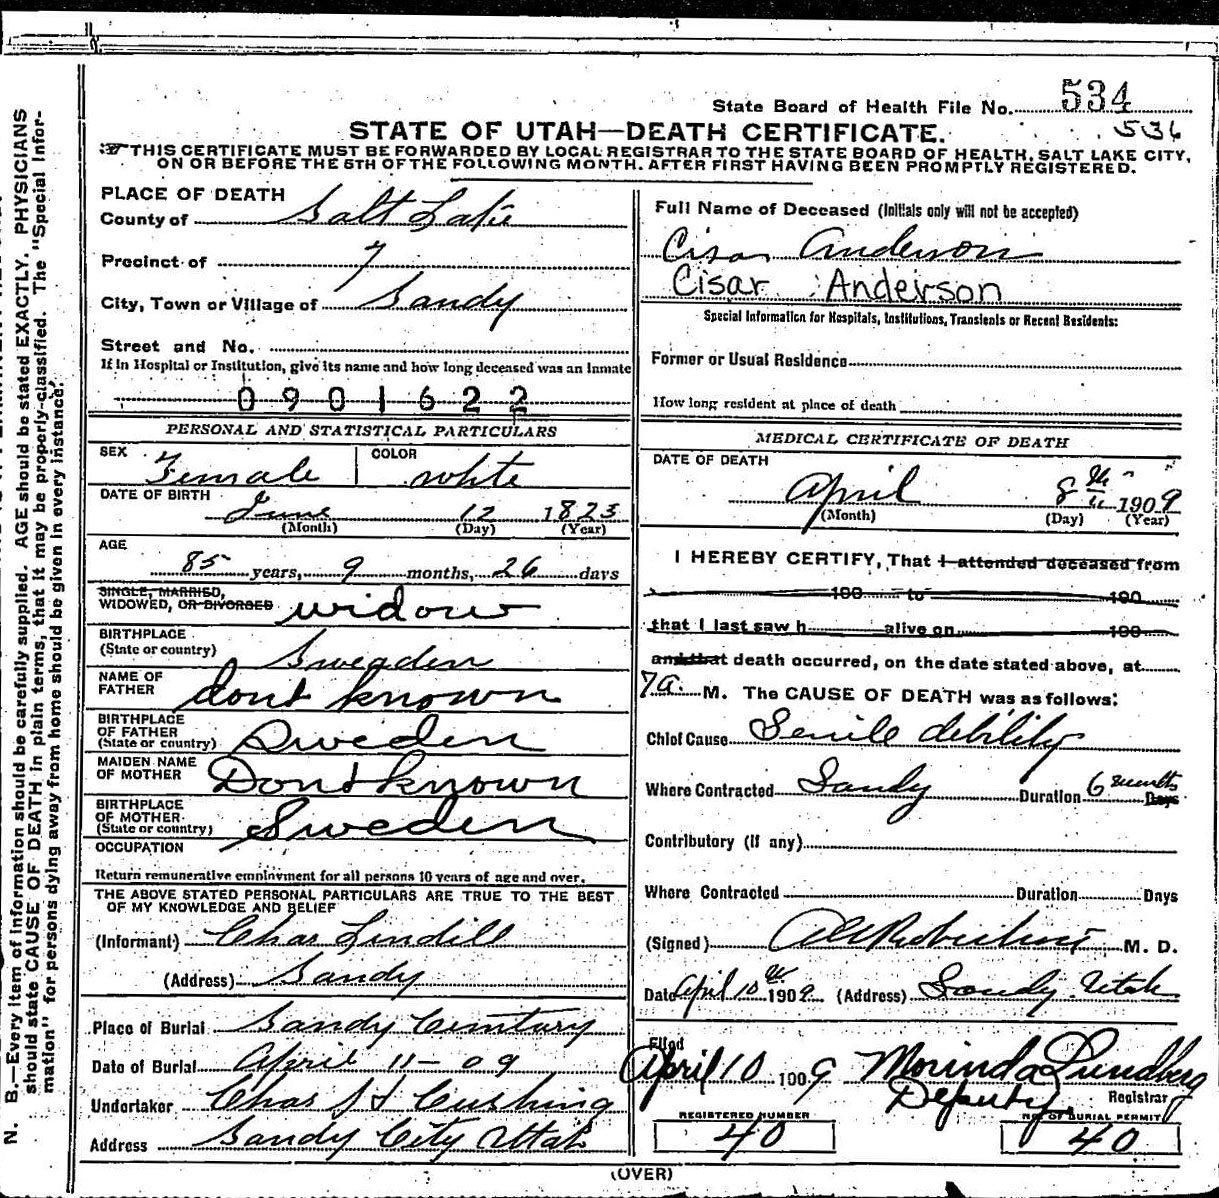 State Board of Health File No. 534
STATE OF UTAH—DEATH CERTIFICATE.
536
THIS CERTIFICATE MUST BE FORWARDED BY LOCAL REGISTRAR TO THE STATE BOARD OF HEALTH, SALT LAKE CITY,
ON OR BEFORE THE 5TH OF THE FOLLOWING MONTH. AFTER FIRST HAVING BEEN PROMPTLY REGISTERED.
PLACE OF DEATH
County of Salt Lake
Precinct of 7
City, Town or Village of Sandy
Street and No.
If in Hospital or Institution, give its name and how long deceased was an Inmate
0901622
PERSONAL AND STATISTICAL PARTICULARS
SEX Female COLOR white
DATE OF BIRTH
June 12 1823
(Month) (Day) (Year)
AGE
85 years, 9 months, 26 days
SINGLE, MARRIED,
WIDOWED, OR DIVORCED widow
BIRTHPLACE
(State or country) Sweaden
NAME OF
FATHER dont known
BIRTHPLACE
OF FATHER
(State or country) Sweden
MAIDEN NAME
OF MOTHER Dont known
BIRTHPLACE
OF MOTHER
(State or country) Sweden
OCCUPATION
Return remunerative employment for all persons 10 years of age and over.
THE ABOVE STATED PERSONAL PARTICULARS ARE TRUE TO THE BEST
OF MY KNOWLEDGE AND BELIEF
(Informant) Chas Lindill
(Address) Sandy
Place of Burial Sandy Cemtary
Date of Burial April 11-09
Undertaker Chas Cushing
Address Sandy City Utah
Full Name of Deceased (Initials only will not be accepted)
Cisar Anderson
Cisar Anderson
Special Information for Hospitals, Institutions, Transients or Recent Residents:
Former or Usual Residence
How long resident at place of death
MEDICAL CERTIFICATE OF DEATH
DATE OF DEATH
April 8th 1909
(Month) (Day) (Year)
I HEREBY CERTIFY, That I attended deceased from
190 to 190
that I last saw h alive on 190
and that death occurred, on the date stated above, at
7a. M. The CAUSE OF DEATH was as follows:
Chief Cause Senile debility
Where Contracted Sandy Duration 6 months Days
Contributory (if any)
Where Contracted Duration Days
(Signed) M. D.
Date April 10th 1909 (Address) Sandy Utah
Filed
April 10 1909 Morinda Lundberg
Deputy Registrar
REGISTERED NUMBER
40
NO. OF BURIAL PERMIT
40
(OVER)
N. B.—Every item of information should be carefully supplied. AGE should be stated EXACTLY. PHYSICIANS
should state CAUSE OF DEATH in plain terms, that it may be properly classified. The "Special Infor-
mation" for persons dying away from home should be given in every instance.